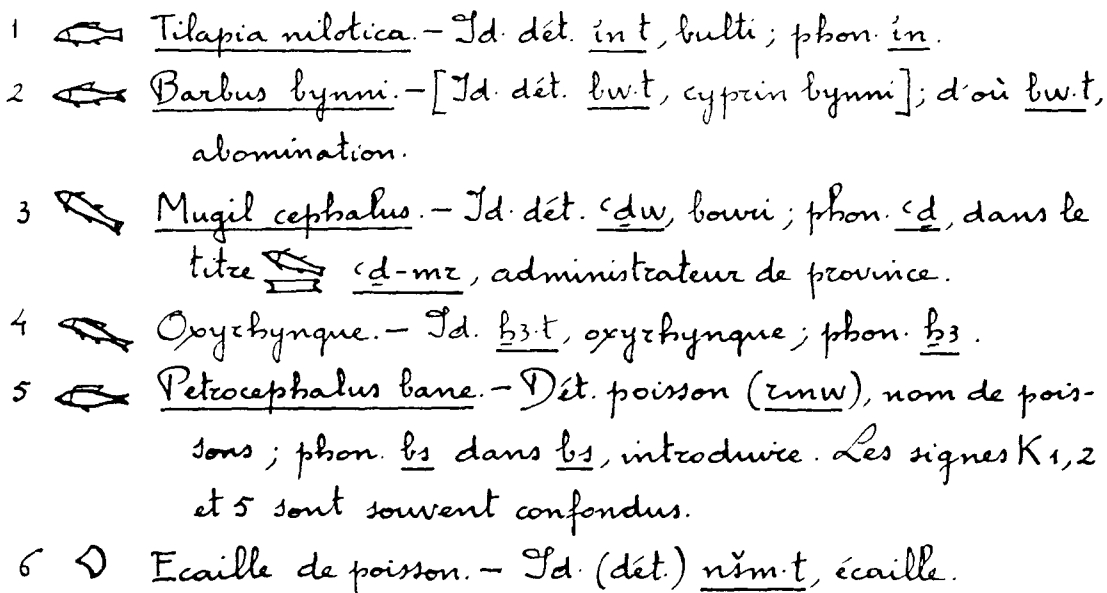 1 𓆛 Tilapia nilotica. – Id. dét. ỉn·t, bulti ; phon. ỉn.
2 𓆜 Barbus bynni. – [Id. dét. bw·t, cyprin bynni] ; d'où bw·t,
abomination.
3 𓆝 Mugil cephalus. – Id. dét. ꜥḏw, bouri ; phon. ꜥḏ, dans le
titre 𓆝𓈘 ꜥḏ-mr, administrateur de province.
4 𓆞 Oxyrhynque. – Id. ẖꜣ·t, oxyrhynque ; phon. ẖꜣ.
5 𓆟 Petrocephalus bane. – Dét. poisson (rmw), nom de pois-
sons ; phon. bs dans bs, introduire. Les signes K 1, 2
et 5 sont souvent confondus.
6 𓆠 Ecaille de poisson. – Id. (dét.) nšm·t, écaille.